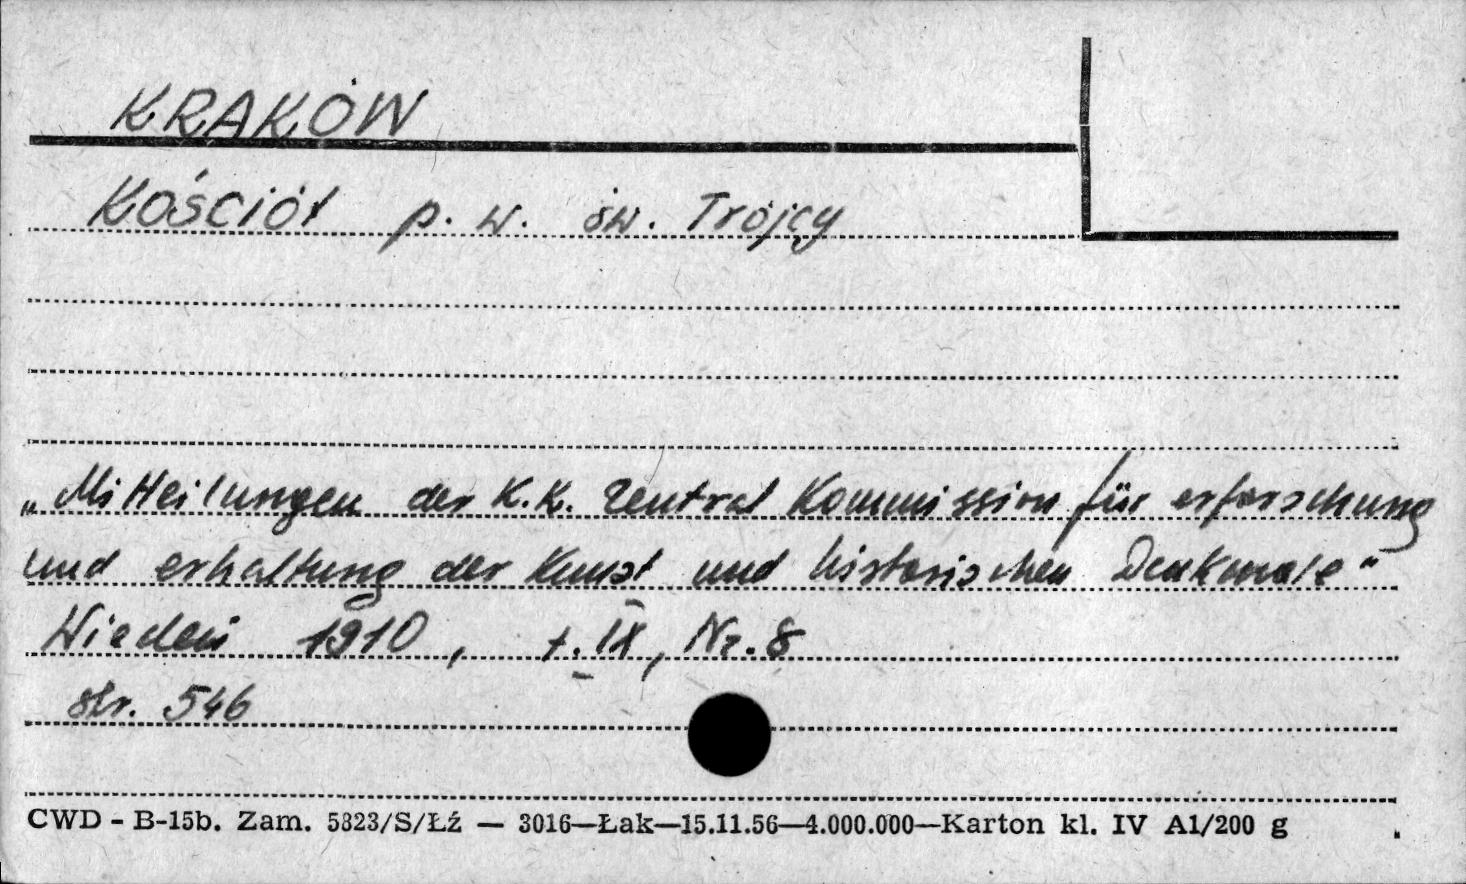 KRAKÓW
Kościół p. w. św. Trójcy
„Mitteilungen der K.K. Zentral Kommission für erforschung
und erhaltung der Kunst und historischen Denkmale"
Wiedeń 1910, t. IX, Nr. 8
str. 546
CWD - B-15b. Zam. 5823/S/Łź — 3016—Łak—15.11.56—4.000.000—Karton kl. IV A1/200 g